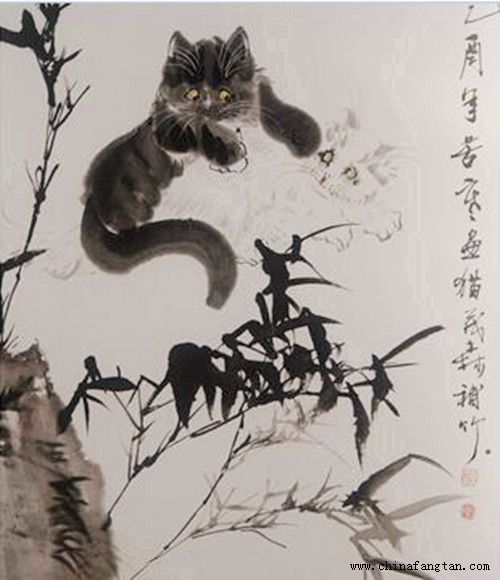 乙酉年苦画猫茂森補竹
www.chinafangtan.com